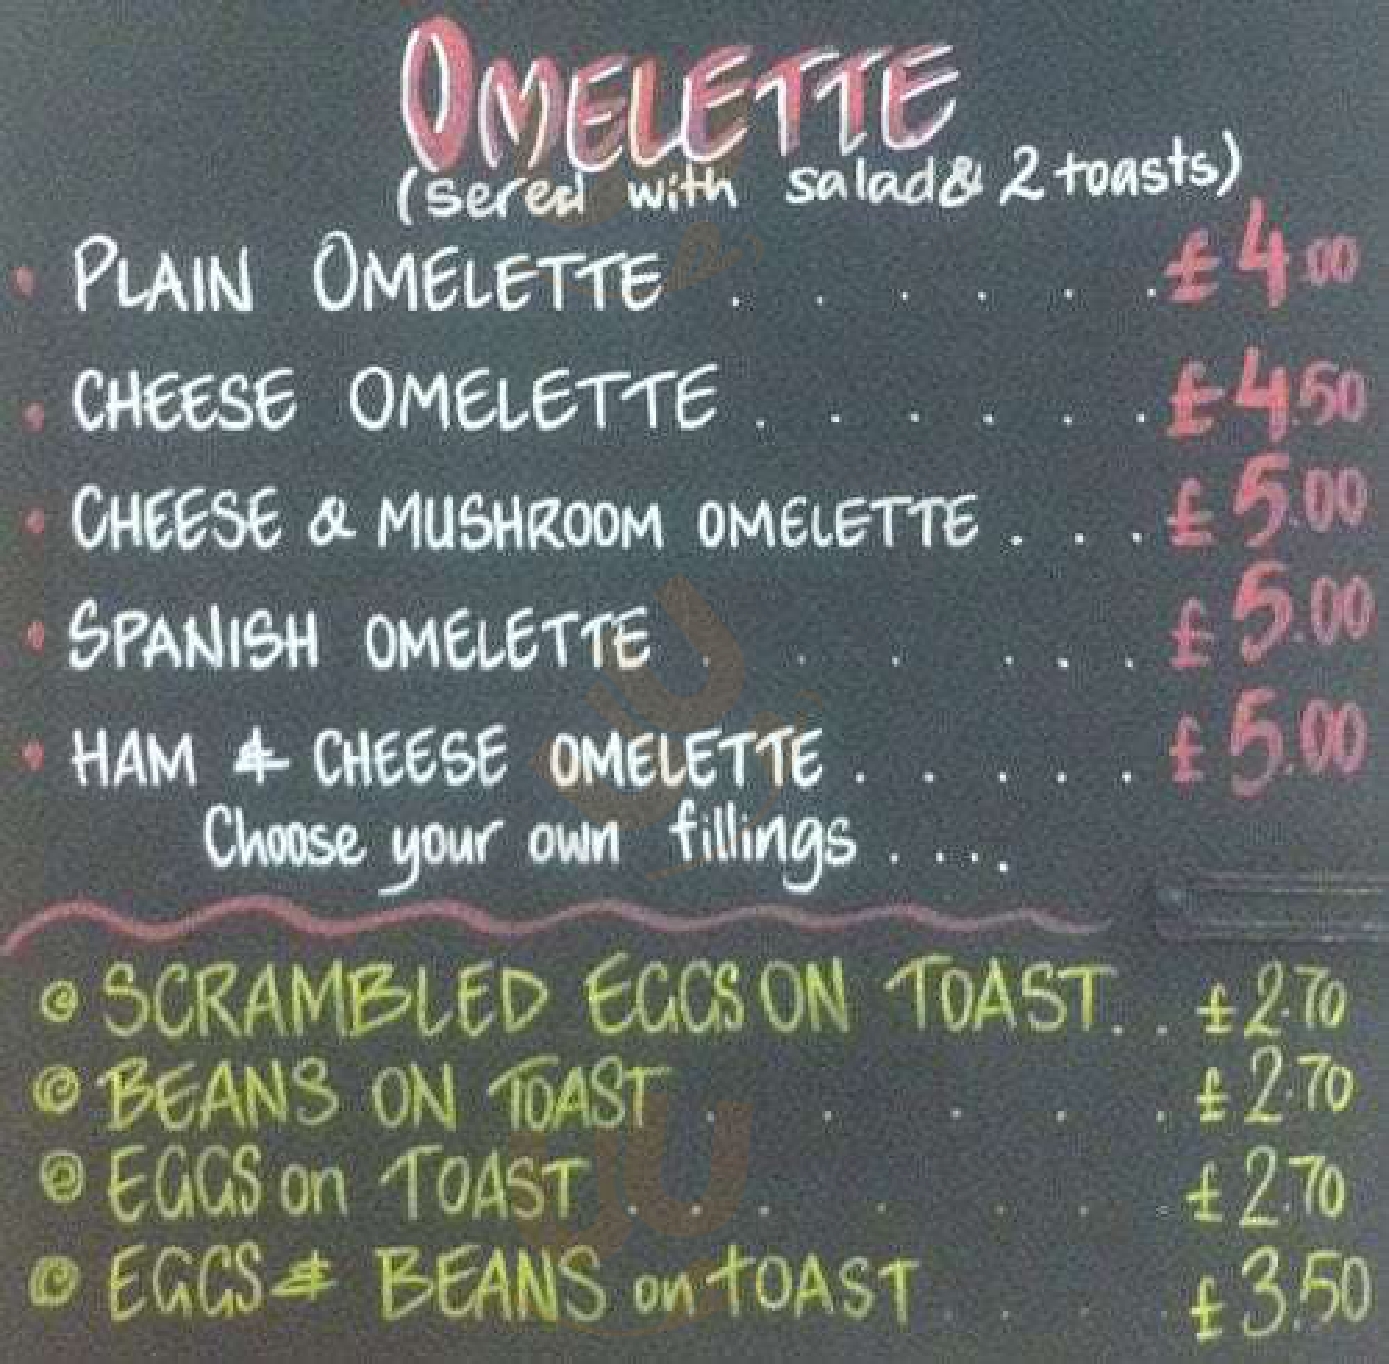 OMELETTE
(sered with salad & 2 toasts)
PLAIN OMELETTE . . . . . . £4.00
CHEESE OMELETTE . . . . . . £4.50
CHEESE & MUSHROOM OMELETTE . . . £5.00
SPANISH OMELETTE . . . . . . £5.00
HAM & CHEESE OMELETTE . . . . . £5.00
Choose your own fillings . . . .
SCRAMBLED EGGS ON TOAST . . £2.70
BEANS ON TOAST . . . . . £2.70
EGGS on TOAST . . . . . . . £2.70
EGGS & BEANS on tOAST . . . . £3.50